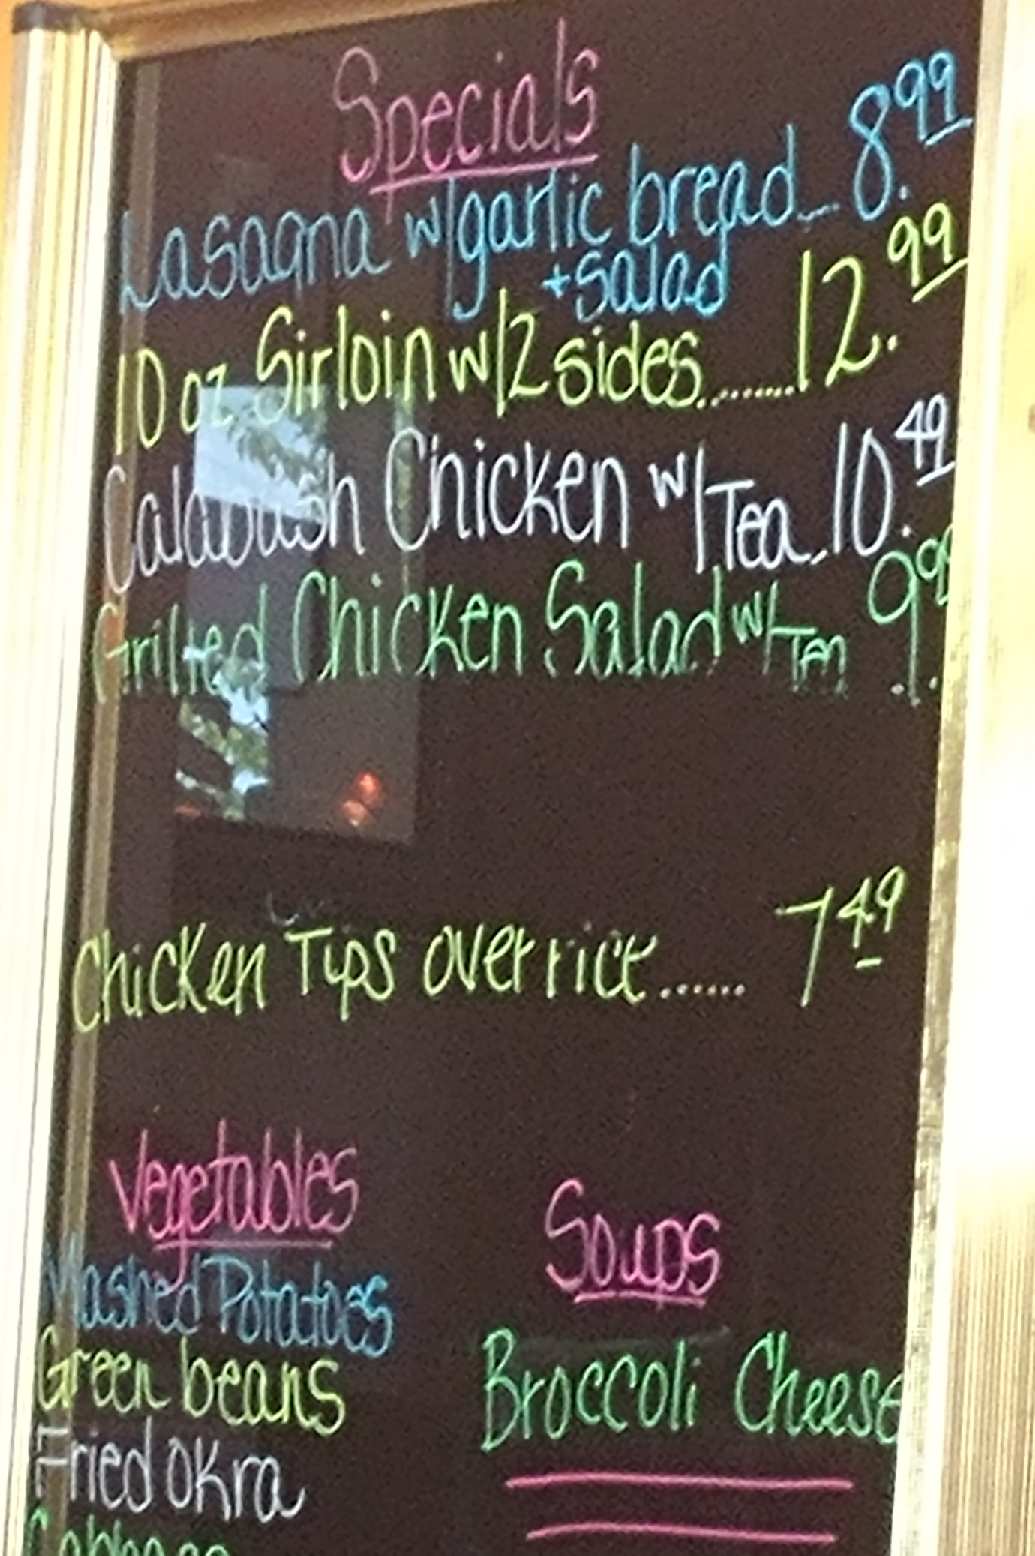 Specials
Lasagna w/garlic bread... 8.99
+ salad
10 oz Sirloin w/2 sides......... 12.99
Calabash Chicken w/Tea... 10.49
Grilled Chicken Salad w/Tea 9.99
Chicken Tips over rice...... 7 49
Vegetables
Mashed Potatoes
Green beans
Fried okra
Cabbage
Soups
Broccoli Cheese